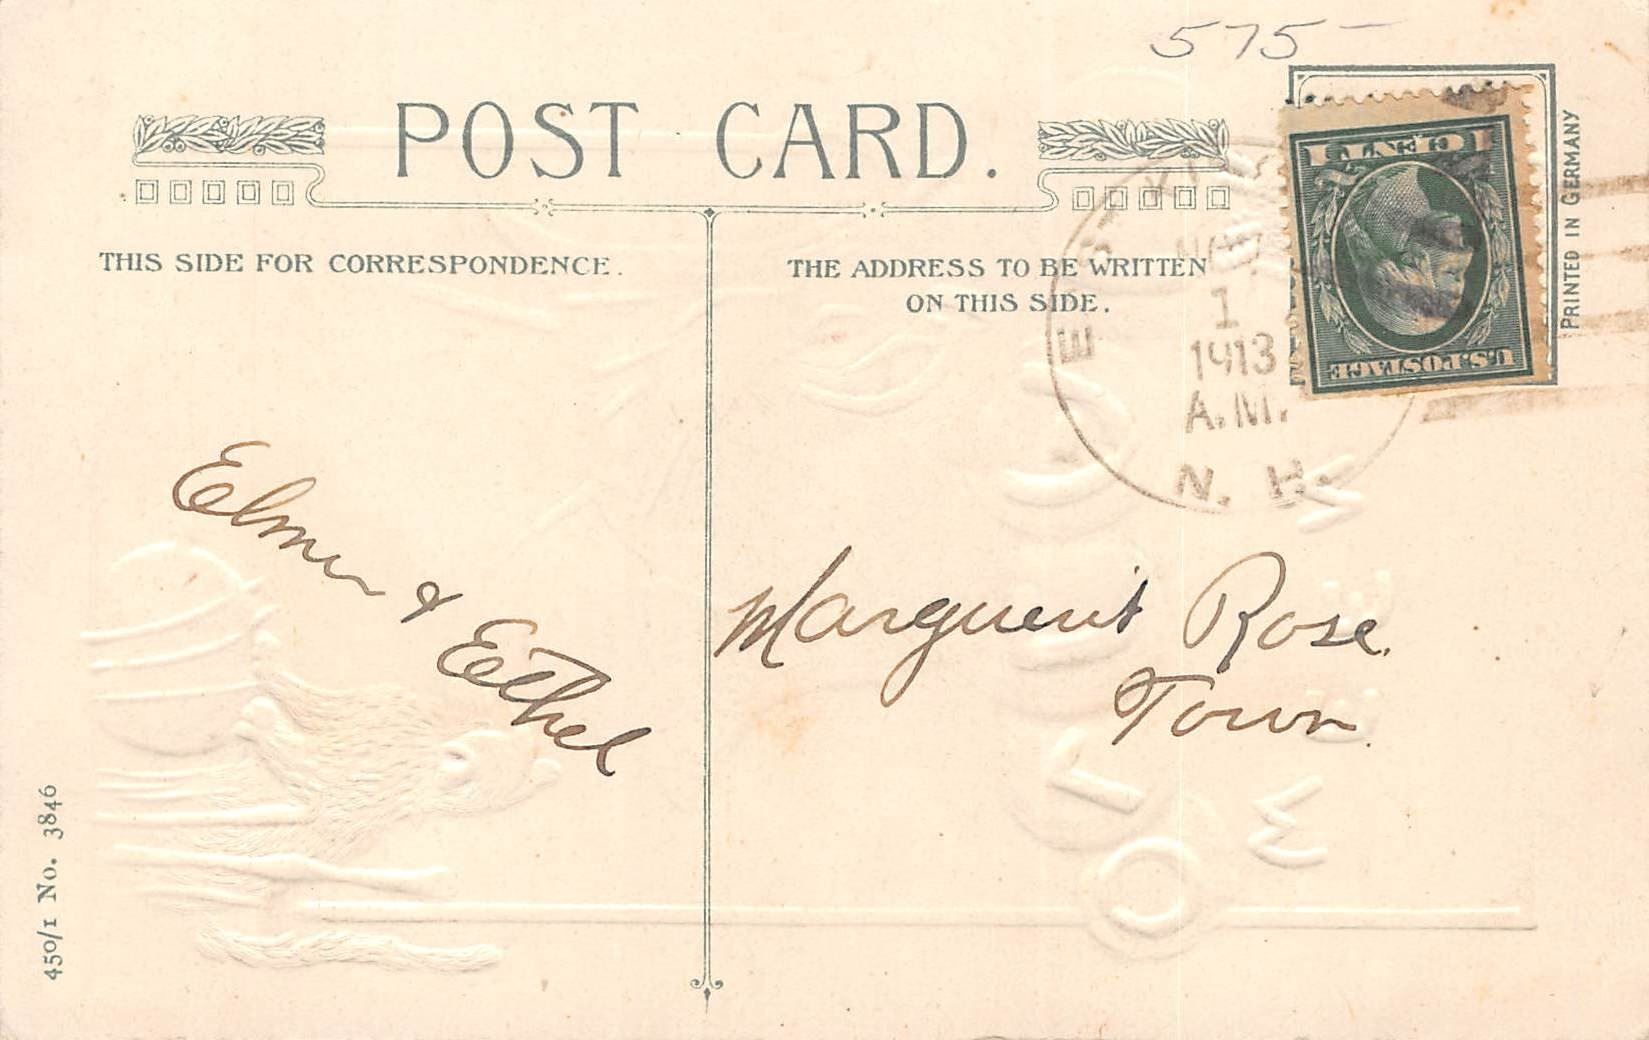 575-
POST CARD.
THIS SIDE FOR CORRESPONDENCE.
THE ADDRESS TO BE WRITTEN
ON THIS SIDE.
1 CENT 1
U.S. POSTAGE
PRINTED IN GERMANY
NOV
1
1913
A.M.
N. H.
Elmer & Ethel
Marguerit Rose.
Town.
450/1 No. 3846